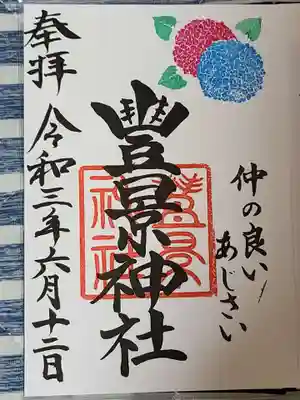 奉拝
令和三年六月十二日
豊景神社
仲の良い
あじさい